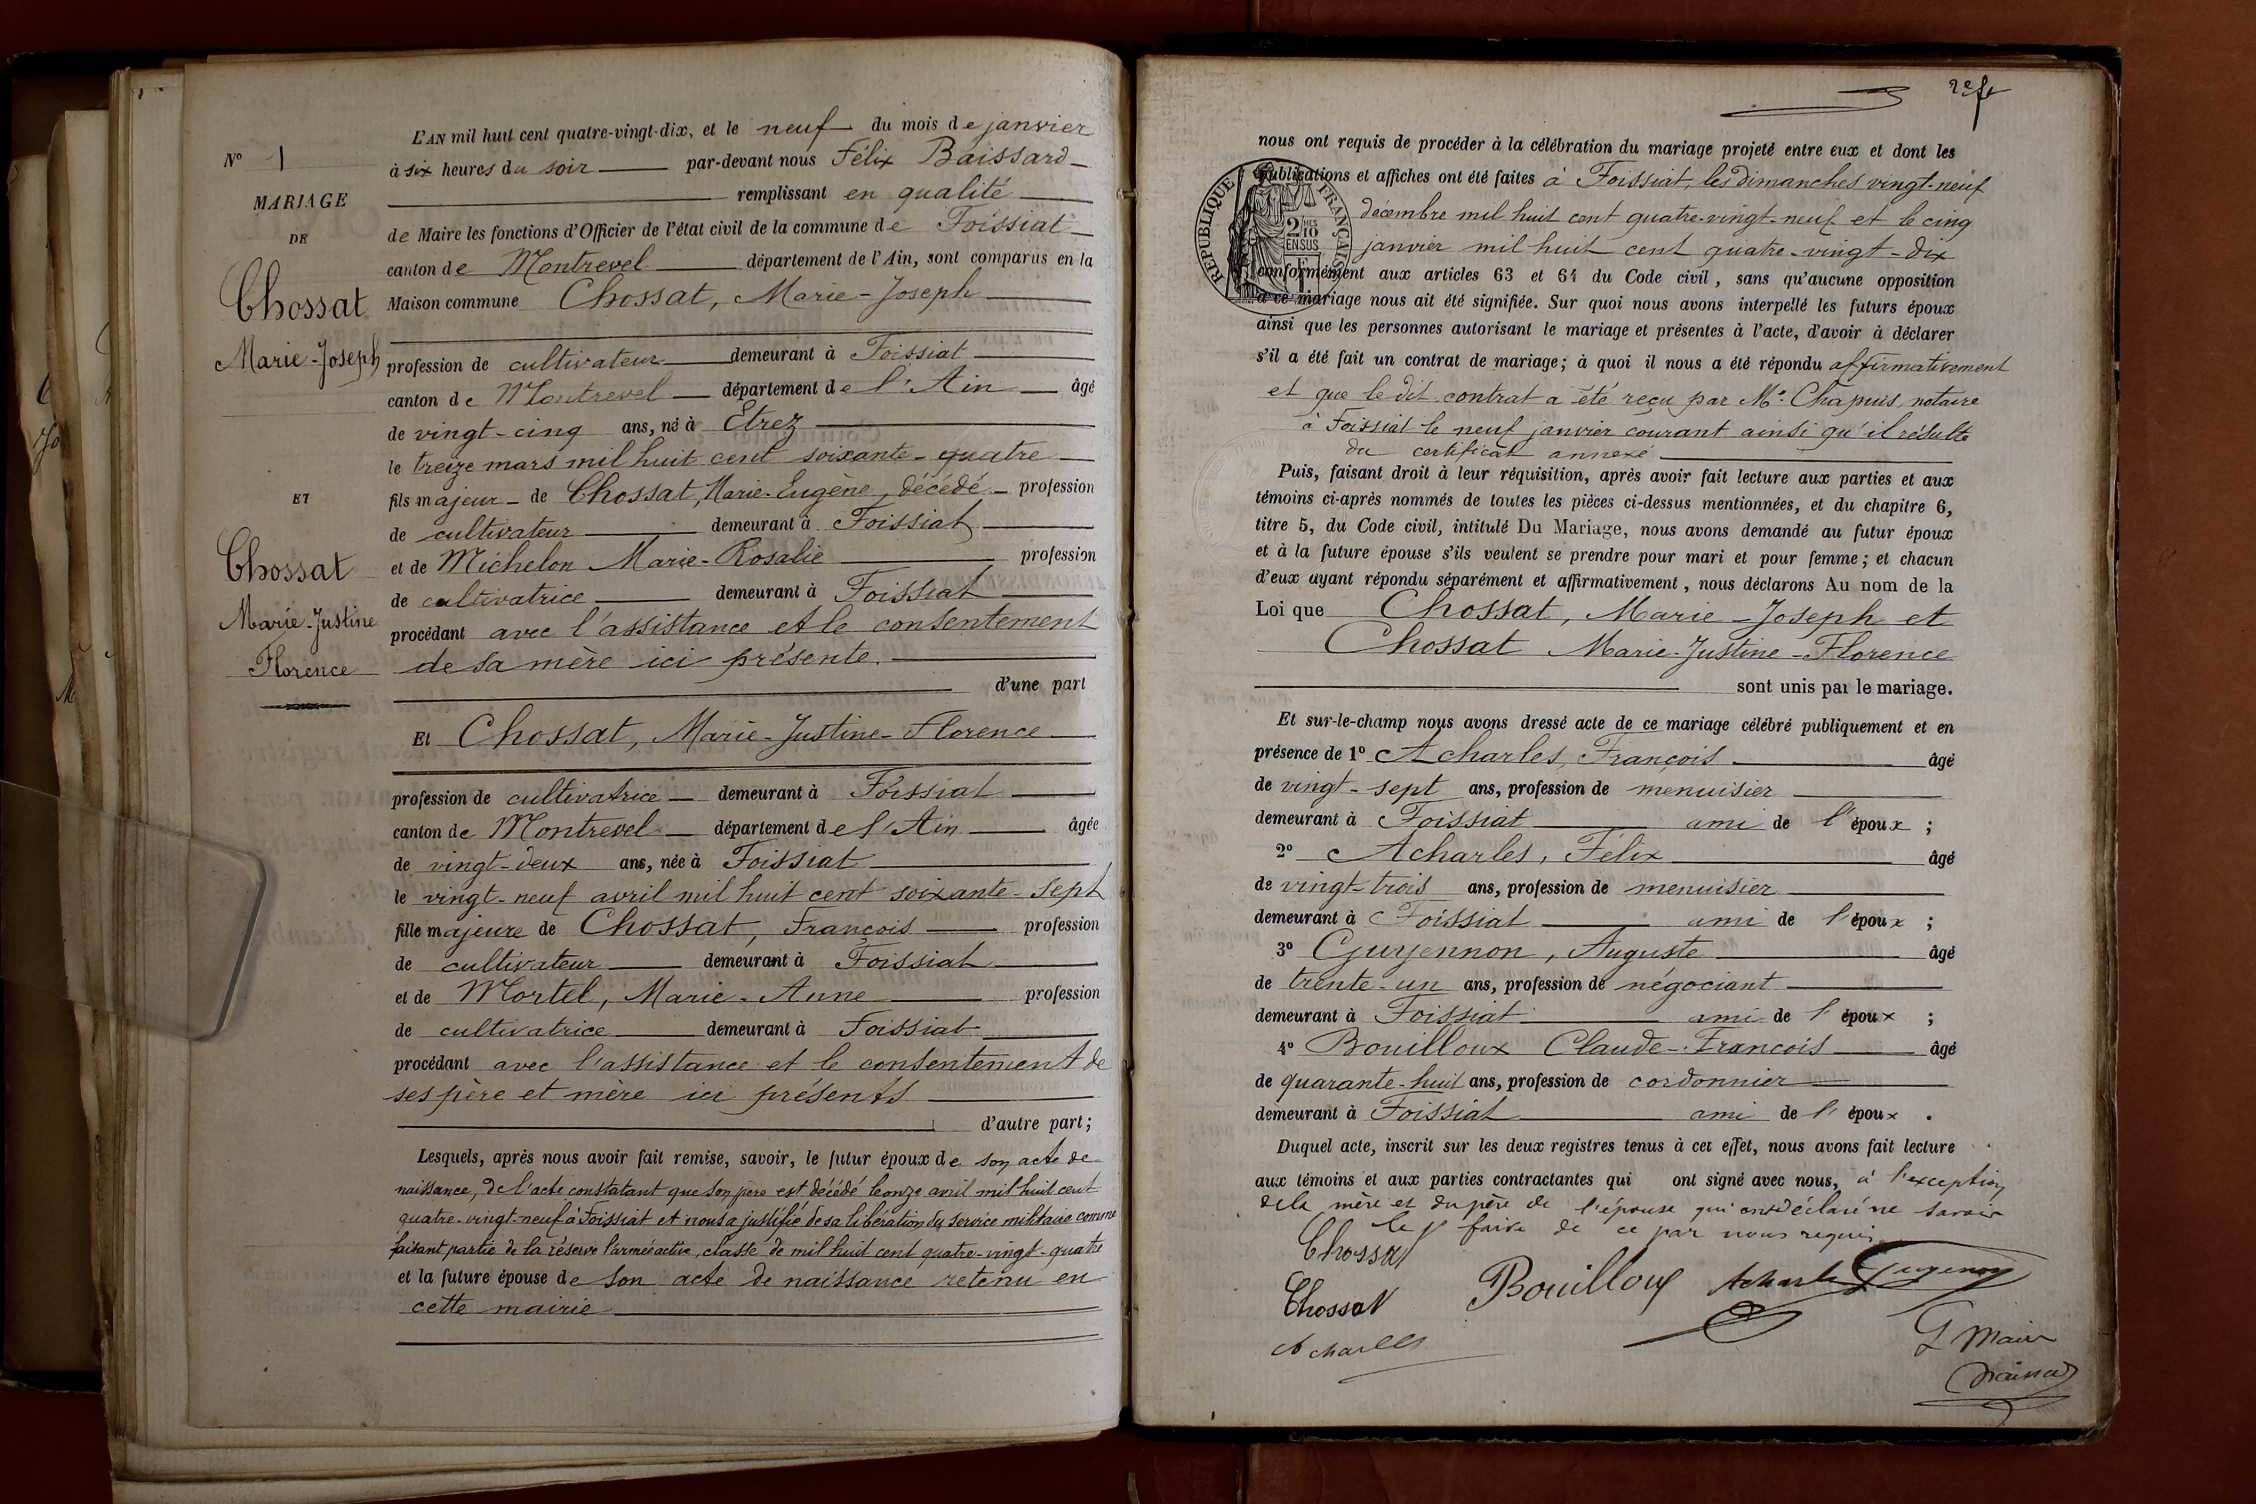 L'AN mil huit cent quatre-vingt-dix, et le neuf du mois de janvier
à six heures du soir par-devant nous Félix Baissard
remplissant en qualité
de Maire les fonctions d'Officier de l'état civil de la commune de Foissiat
canton de Montrevel département de l'Ain, sont comparus en la
Maison commune Chossat, Marie-Joseph
profession de cultivateur demeurant à Foissiat
canton de Montrevel département de l'Ain âgé
de vingt-cinq ans, né à Etrez
le treize mars mil huit cent soixante-quatre
fils majeur de Chossat, Marie-Eugène, décédé profession
de cultivateur demeurant à Foissiat
et de Michelon Marie-Rosalie profession
de cultivatrice demeurant à Foissiat
procédant avec l'assistance et le consentement
de sa mère ici présente.
d'une part
Et Chossat, Marie-Justine-Florence
profession de cultivatrice demeurant à Foissiat
canton de Montrevel département de l'Ain âgée
de vingt-deux ans, née à Foissiat
le vingt-neuf avril mil huit cent soixante-sept
fille majeure de Chossat, François profession
de cultivateur demeurant à Foissiat
et de Mortel, Marie-Anne profession
de cultivatrice demeurant à Foissiat
procédant avec l'assistance et le consentement de
ses père et mère ici présents
d'autre part;
Lesquels, après nous avoir fait remise, savoir, le futur époux de son acte de
naissance, de l'acte constatant que son père est décédé le onze avril mil huit cent
quatre-vingt-neuf à Foissiat et nous a justifié de sa libération du service militaire comme
faisant partie de la réserve l'armée active, classe de mil huit cent quatre-vingt-quatre
et la future épouse de son acte de naissance retenu en
cette mairie
N° 1
MARIAGE
DE
Chossat
Marie-Joseph
ET
Chossat
Marie-Justine
Florence
nous ont requis de procéder à la célébration du mariage projeté entre eux et dont les
publications et affiches ont été faites à Foissiat, les dimanches vingt-neuf
décembre mil huit cent quatre-vingt-neuf et le cinq
janvier mil huit cent quatre-vingt-dix
conformément aux articles 63 et 64 du Code civil, sans qu'aucune opposition
à ce mariage nous ait été signifiée. Sur quoi nous avons interpellé les futurs époux
ainsi que les personnes autorisant le mariage et présentes à l'acte, d'avoir à déclarer
s'il a été fait un contrat de mariage; à quoi il nous a été répondu affirmativement
et que le dit contrat a été reçu par Me Chapuis, notaire
à Foissiat le neuf janvier courant ainsi qu'il résulte
du certificat annexé
Puis, faisant droit à leur réquisition, après avoir fait lecture aux parties et aux
témoins ci-après nommés de toutes les pièces ci-dessus mentionnées, et du chapitre 6,
titre 5, du Code civil, intitulé Du Mariage, nous avons demandé au futur époux
et à la future épouse s'ils veulent se prendre pour mari et pour femme; et chacun
d'eux ayant répondu séparément et affirmativement, nous déclarons Au nom de la
Loi que Chossat, Marie-Joseph et
Chossat Marie-Justine-Florence
sont unis par le mariage.
Et sur-le-champ nous avons dressé acte de ce mariage célébré publiquement et en
présence de 1° Acharles, François âgé
de vingt-sept ans, profession de menuisier
demeurant à Foissiat ami de l'époux;
2° Acharles, Félix âgé
de vingt-trois ans, profession de menuisier
demeurant à Foissiat ami de l'époux;
3° Guyennon, Auguste âgé
de trente-un ans, profession de négociant
demeurant à Foissiat ami de l'époux;
4° Bouilloux Claude-François âgé
de quarante-huit ans, profession de cordonnier
demeurant à Foissiat ami de l'époux.
Duquel acte, inscrit sur les deux registres tenus à cet effet, nous avons fait lecture
aux témoins et aux parties contractantes qui ont signé avec nous, à l'exception
de la mère et du père de l'épouse qui ont déclaré ne savoir
le faire de ce par nous requis
Chossat
Chossat
Bouilloux
Acharles
Acharles
Maire
RÉPUBLIQUE FRANÇAISE
2/10 MES
EN SUS